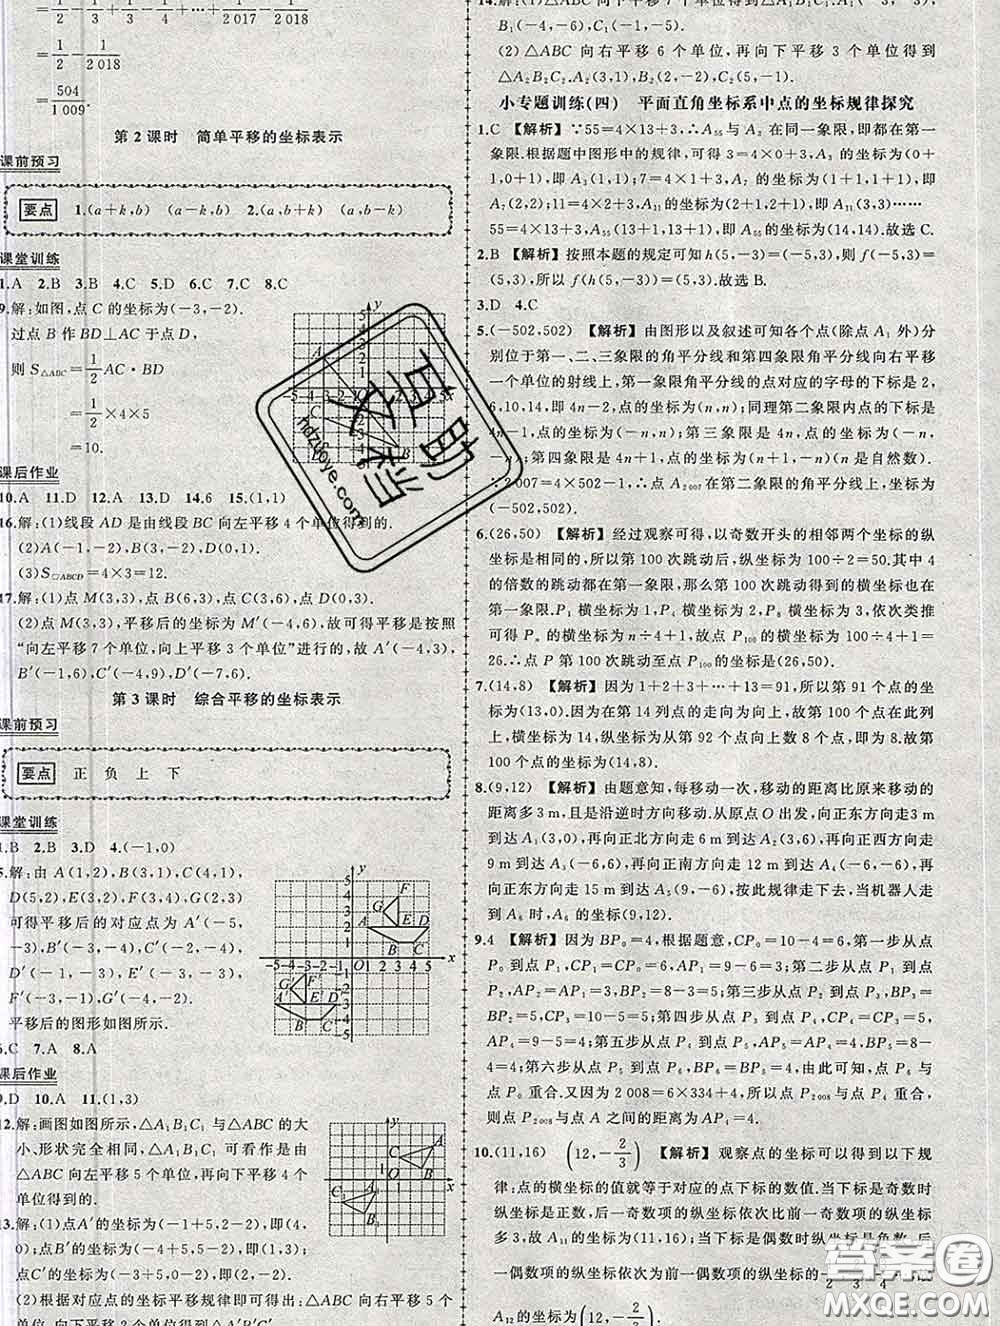 第2课时　简单平移的坐标表示
课前预习
要点 1.(a+k,b) (a-k,b) 2.(a,b+k) (a,b-k)
课堂训练
1.A 2.B 3.B 4.C 5.D 6.C 7.C 8.C
9.解:如图,点C的坐标为(-3,-2).
过点B作BD⊥AC于点D,
则S△ABC=1/2 AC·BD
=1/2×4×5
=10.
课后作业
10.A 11.D 12.A 13.D 14.6 15.(1,1)
16.解:(1)线段AD是由线段BC向左平移4个单位得到的.
(2)A(-1,-2),B(3,-2),D(-1,1).
(3)S▱ABCD=4×3=12.
17.解:(1)点M(3,3),点B(6,3),点C(3,6),点D(0,3).
(2)点M(3,3),平移后的坐标为M′(-4,6),故可得平移是按照
“向左平移7个单位,向上平移3个单位”进行的,故A′(-4,3),
B′(-1,6),C′(-4,9),D′(-7,6).
第3课时　综合平移的坐标表示
课前预习
要点 正 负 上 下
课堂训练
1.B 2.B 3.D 4.(-1,0)
5.解:由A(1,2),B(3,1),C(4,1),
D(5,2),E(3,2),F(3,4),G(2,3)
可得平移后的对应点为A′(-5,
-3),B′(-3,-4),C′(-2,
-4),D′(-1,-3),E′(-3,-3),
F′(-3,-1),G′(-4,-2).
平移后的图形如图所示.
6.C 7.A 8.A
课后作业
9.D 10.A 11.(1,3)
12.解:画图如图所示,△A₁B₁C₁与△ABC的大
小、形状完全相同,△A₁B₁C₁可看作是由
△ABC向左平移5个单位,再向下平移4个
单位得到的.
13.解:(1)点A′的坐标为(-1+5,2-2),即(4,
0);点B′的坐标为(-4+5,5-2),即(1,3);
点C′的坐标为(-3+5,0-2),即(2,-2).
(2)根据对应点的坐标平移规律即可得出:△ABC向右平移5个
B₁(-4,-6),C₁(1,-5).
(2)△ABC向右平移6个单位,再向下平移3个单位得到
△A₂B₂C₂,A₂(3,1),B₂(2,-2),C₂(7,-1).
小专题训练(四)　平面直角坐标系中点的坐标规律探究
1.C 【解析】∵55=4×13+3,∴A₅₅与A₃在同一象限,即都在第一
象限.根据题中图形中的规律,可得3=4×0+3,A₃的坐标为(0+
1,0+1),即A₃(1,1);7=4×1+3,A₇的坐标为(1+1,1+1),即
A₇(2,2);11=4×2+3,A₁₁的坐标为(2+1,2+1),即A₁₁(3,3)……
55=4×13+3,A₅₅(13+1,13+1),A₅₅的坐标为(14,14).故选C.
2.B 【解析】按照本题的规定可知h(5,-3)=(-5,3),则f(-5,3)=
(5,3),所以f(h(5,-3))=(5,3).故选B.
3.D 4.C
5.(-502,502) 【解析】由图形以及叙述可知各个点(除点A₁外)分
别位于第一、二、三象限的角平分线和第四象限角平分线向右平移
一个单位的射线上,第一象限角平分线的点对应的字母的下标是2,
6,10,14,即4n-2,点的坐标为(n,n);同理第二象限内点的下标是
4n-1,点的坐标为(-n,n);第三象限是4n,点的坐标为(-n,
-n);第四象限是4n+1,点的坐标为(1+n,-n)(n是自然数).
∵2007=4×502-1,∴点A₂₀₀₇在第二象限,∴点A₂₀₀₇的坐标为
(-502,502).
6.(26,50) 【解析】经过观察可得,以奇数开头的相邻两个坐标的纵
坐标是相同的,所以第100次跳动后,纵坐标为100÷2=50.其中4
的倍数的跳动都在第一象限,那么第100次跳动得到的横坐标也在
第一象限.P₁横坐标为1,P₄横坐标为2,P₈横坐标为3,依次类推
可得Pₙ的横坐标为n÷4+1,故点P₁₀₀的横坐标为100÷4+1=
26.∴点P第100次跳动至点P₁₀₀的坐标是(26,50).
7.(14,8) 【解析】因为1+2+3+…+13=91,所以第91个点的坐标
为(13,0).因为在第14列点的走向为向上,故第100个点在此列上,
横坐标为14,纵坐标为从第92个点向上数8个点,即为8.故第100
个点的坐标为(14,8).
8.(9,12) 【解析】由题意知,每移动一次,移动的距离比原来移动的
距离多3m,且是沿逆时方向移动.从原点O出发,向正东方向走3
m到达A₁(3,0),再向正北方向走6m到达A₂(3,6),再向正西方向走
9m到达A₃(-6,6),再向正南方向走12m到达A₄(-6,-6),再
向正东方向走15m到达A₅(9,-6),按此规律走下去,当机器人走
到A₆时,A₆的坐标(9,12).
9.4 【解析】因为BP₀=4,根据题意,CP₀=10-4=6;第一步从点
P₀到点P₁,CP₁=CP₀=6,AP₁=9-6=3;第二步从点P₁到点
P₂,AP₂=AP₁=3,BP₂=8-3=5;第三步从点P₂到点P₃,BP₃=
BP₂=5,CP₃=10-5=5;第四步从点P₃到点P₄,CP₄=CP₃=5,
AP₄=9-5=4;第五步从点P₄到点P₅,AP₅=AP₄=4,BP₅=8-
4=4;第六步从点P₅到点P₆,BP₆=BP₅=4,由此可知,点P₆与
点P₀重合.又因为2008=6×334+4,所以点P₂₀₀₈与点P₄重合,
则点P₂₀₀₈与点A之间的距离为AP₄=4.
10.(11,16) (12,-2/3) 【解析】观察点的坐标可以得到以下规
律:点的横坐标的值就等于对应的点下标的数值.当下标是奇数时
纵坐标是正数,后一奇数项的纵坐标依次比前一奇数项的纵坐标
多3,故A₁₁的坐标为(11,16);当下标是偶数时纵坐标是负数,后
A₁₂的坐标为(12,-2/3).
答案圈
MXQE.COM